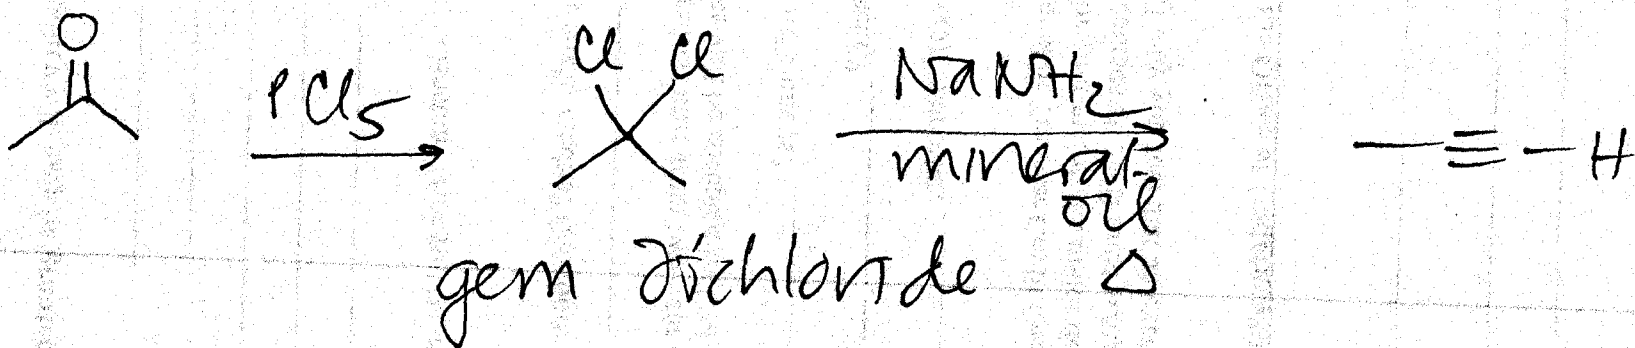 O
Cl Cl
PCl5
NaNH2
mineral
oil
H
gem dichloride
Δ